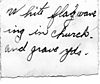 White flag wave
ing in church.
and grave yds.